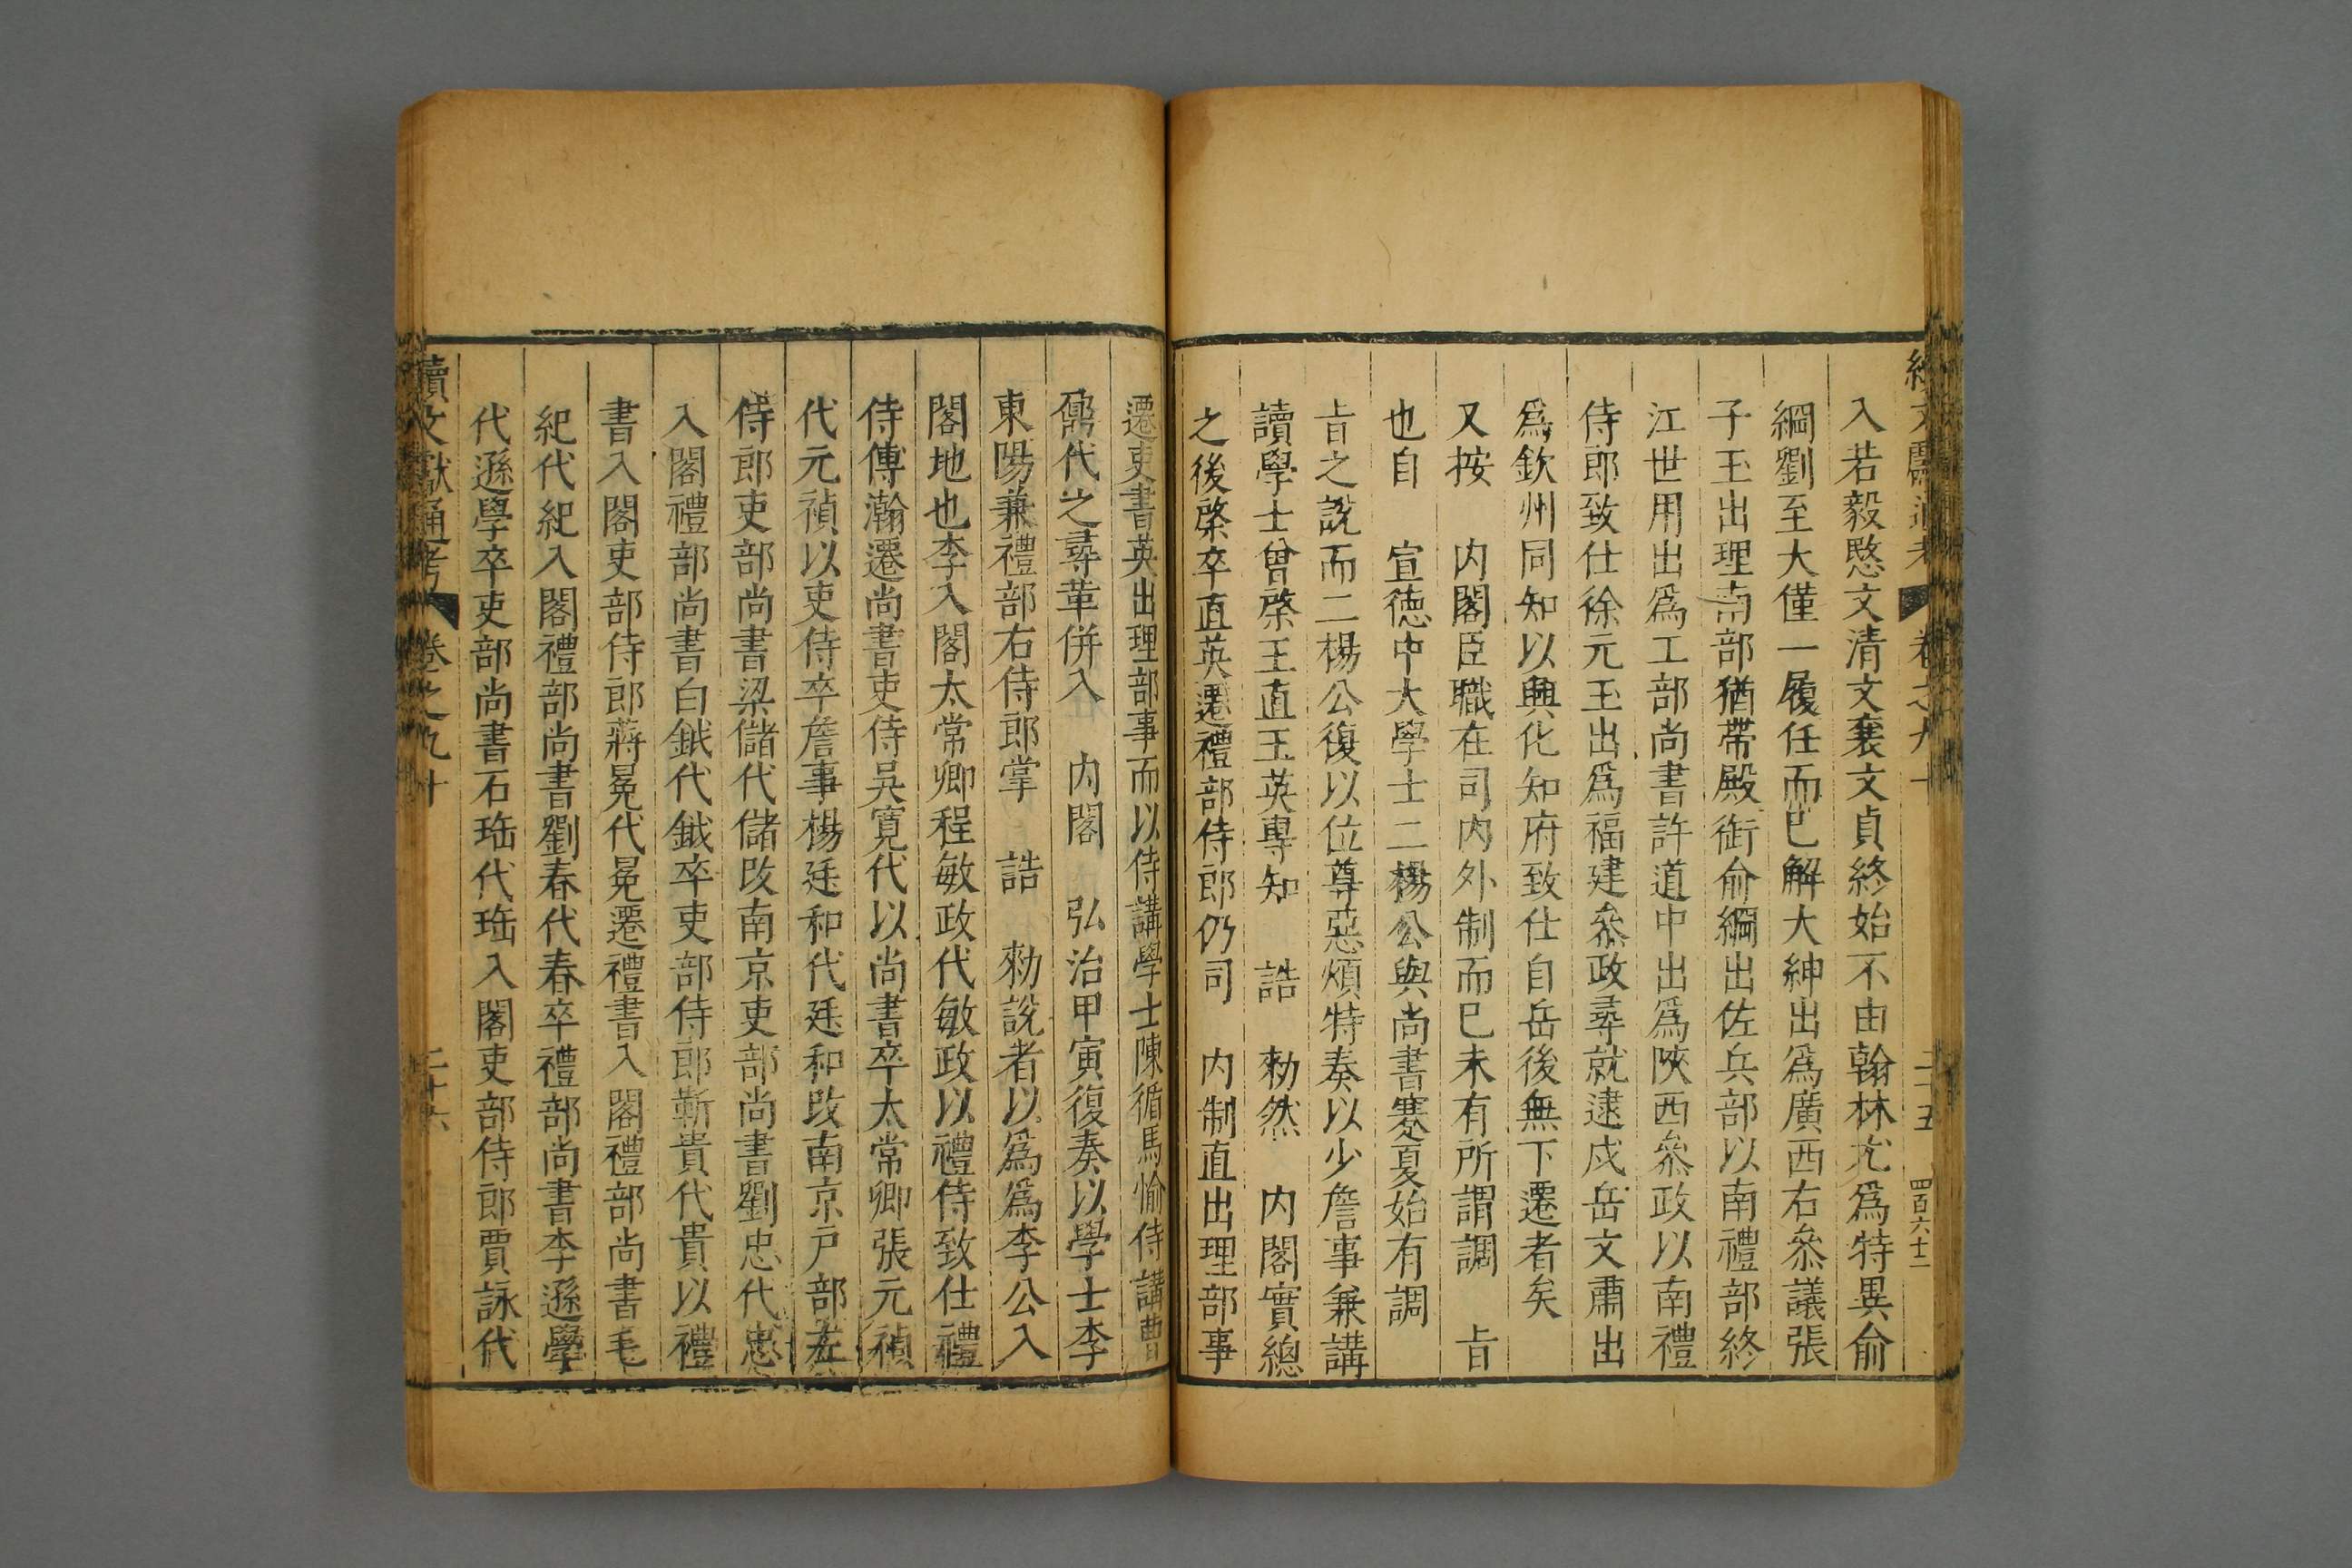 續文獻通考 卷之九十 二十五 四百六十二
入若毅愍文清文襄文貞終始不由翰林尤爲特異俞
綱劉至大僅一履任而巳解大紳出爲廣西右叅議張
子玉出理南部猶帶殿銜俞綱出佐兵部以南禮部終
江世用出爲工部尚書許道中出爲陜西叅政以南禮
侍郎致仕徐元玉出爲福建叅政尋就逮戍岳文肅出
爲欽州同知以興化知府致仕自岳後無下遷者矣
又按 内閣臣職在司内外制而巳未有所謂調 㫖
也自 宣德中大學士二楊公與尚書蹇夏始有調
㫖之說而二楊公復以位尊惡煩特奏以少詹事兼講
讀學士曾棨王直王英專知 誥 勑然 内閣實總
之後棨卒直英遷禮部侍郎仍司 内制直出理部事
遷吏書英出理部事而以侍講學士陳循馬愉侍講曹
鼐代之尋革併入 内閣 弘治甲寅復奏以學士李
東陽兼禮部右侍郎掌 誥 勑說者以爲爲李公入
閣地也李入閣太常卿程敏政代敏政以禮侍致仕禮
侍傅瀚遷尚書吏侍吳寬代以尚書卒太常卿張元禎
代元禎以吏侍卒詹事楊廷和代廷和改南京戸部左
侍郎吏部尚書梁儲代儲改南京吏部尚書劉忠代忠
入閣禮部尚書白鉞代鉞卒吏部侍郎靳貴代貴以禮
書入閣吏部侍郎蔣冕代冕遷禮書入閣禮部尚書毛
紀代紀入閣禮部尚書劉春代春卒禮部尚書李遜學
代遜學卒吏部尚書石珤代珤入閣吏部侍郎賈詠代
續文獻通考 卷之九十 二十六